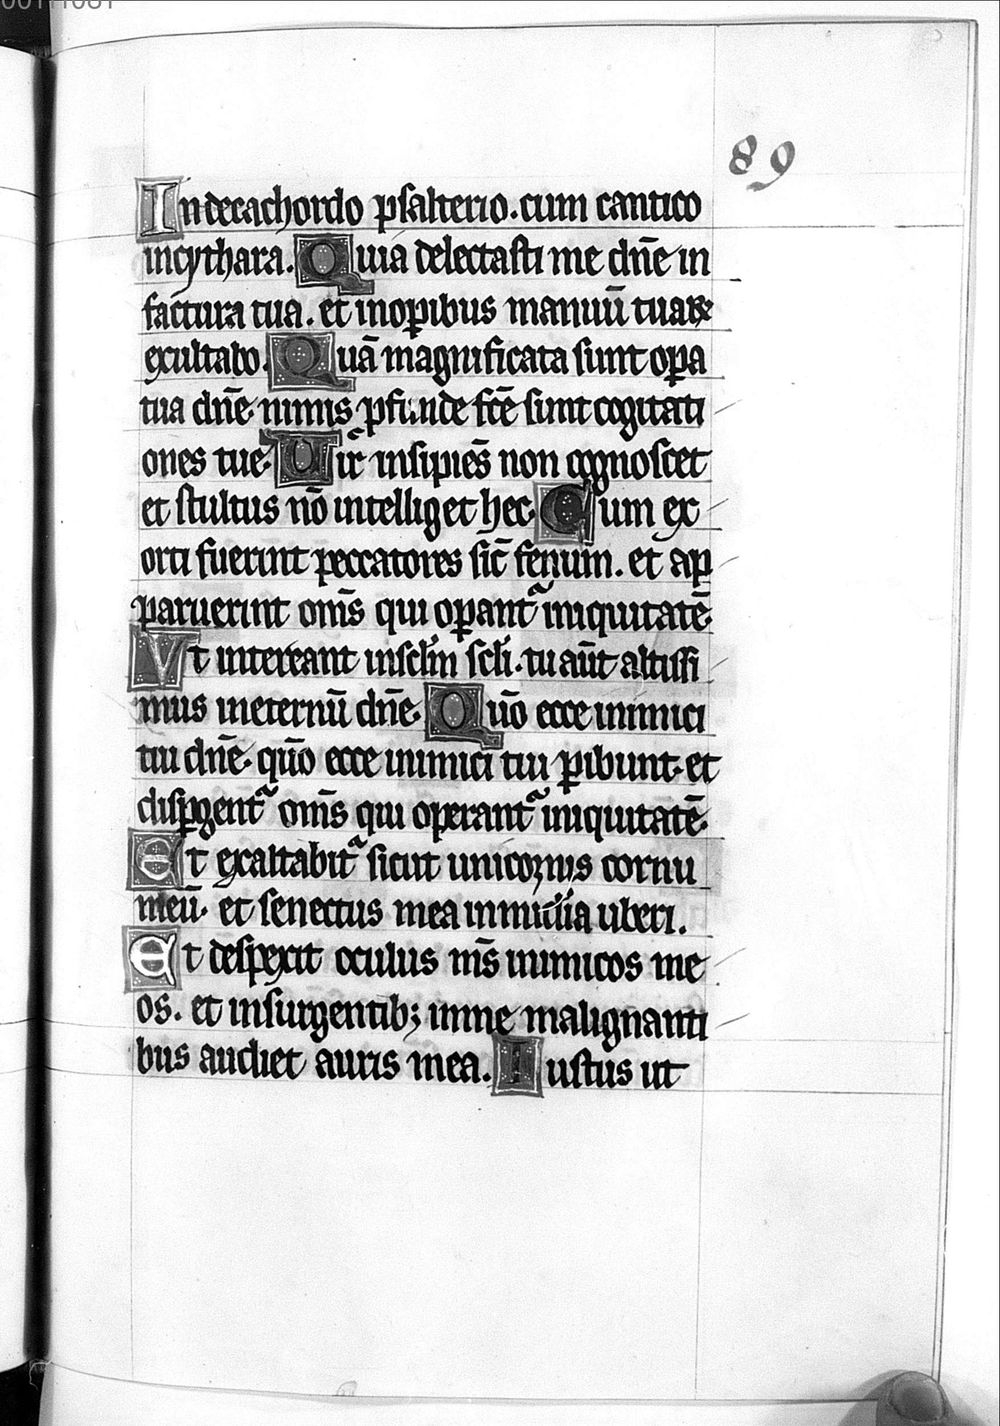 00111081
89
In decachordo psalterio. cum cantico
in cythara. Quia delectasti me dñe in
factura tua. et inoꝑibus manuũ tuaꝝ
exultabo. Quã magnificata sunt oꝑa
tua dñe. nimis ꝓfunde fcẽ sunt cogitati
ones tue. Uir insipiẽs non cognoscet
et stultus nõ intelliget hec. Cum ex
orti fuerint peccatores sic̃ fenum. et ap
paruerint om̃s qui oꝑant᷑ iniquitatẽ.
Vt intereant in sclm̃ scl̃i. tu aũt altissi
mus in eternũ dñe. Quõ ecce inimici
tui dñe. quõ ecce inimici tui ꝑibunt. et
disꝑgent᷑ om̃s qui operant᷑ iniquitatẽ.
Et exaltabit᷑ sicut unicornis cornu
meũ. et senectus mea in mĩa uberi.
Et despexit oculus m̃s inimicos me
os. et insurgentibꝫ in me malignanti
bus audiet auris mea. Iustus ut